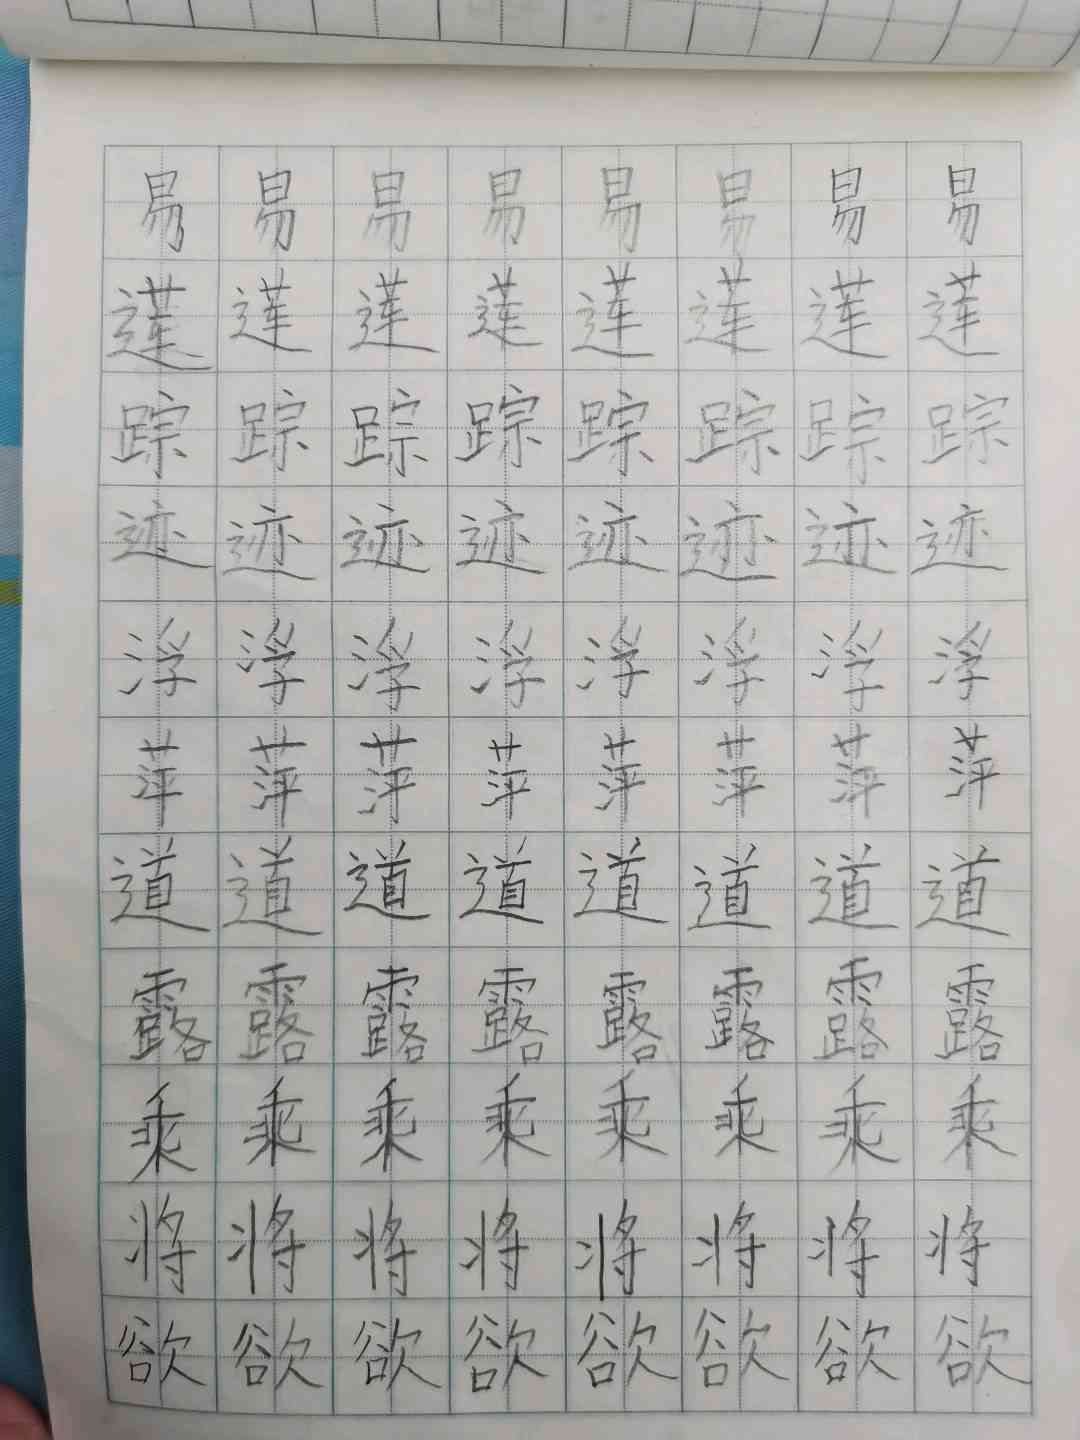 易易易易易易易易
莲莲莲莲莲莲莲莲
踪踪踪踪踪踪踪踪
迹迹迹迹迹迹迹迹
浮浮浮浮浮浮浮浮
萍萍萍萍萍萍萍萍
道道道道道道道道
露露露露露露露露
乘乘乘乘乘乘乘乘
将将将将将将将将
欲欲欲欲欲欲欲欲